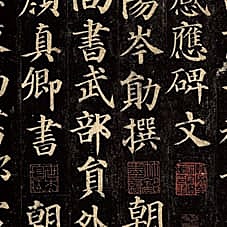 感應碑文
陽岑勛撰 朝
尚書武部員外
顏真卿書 朝